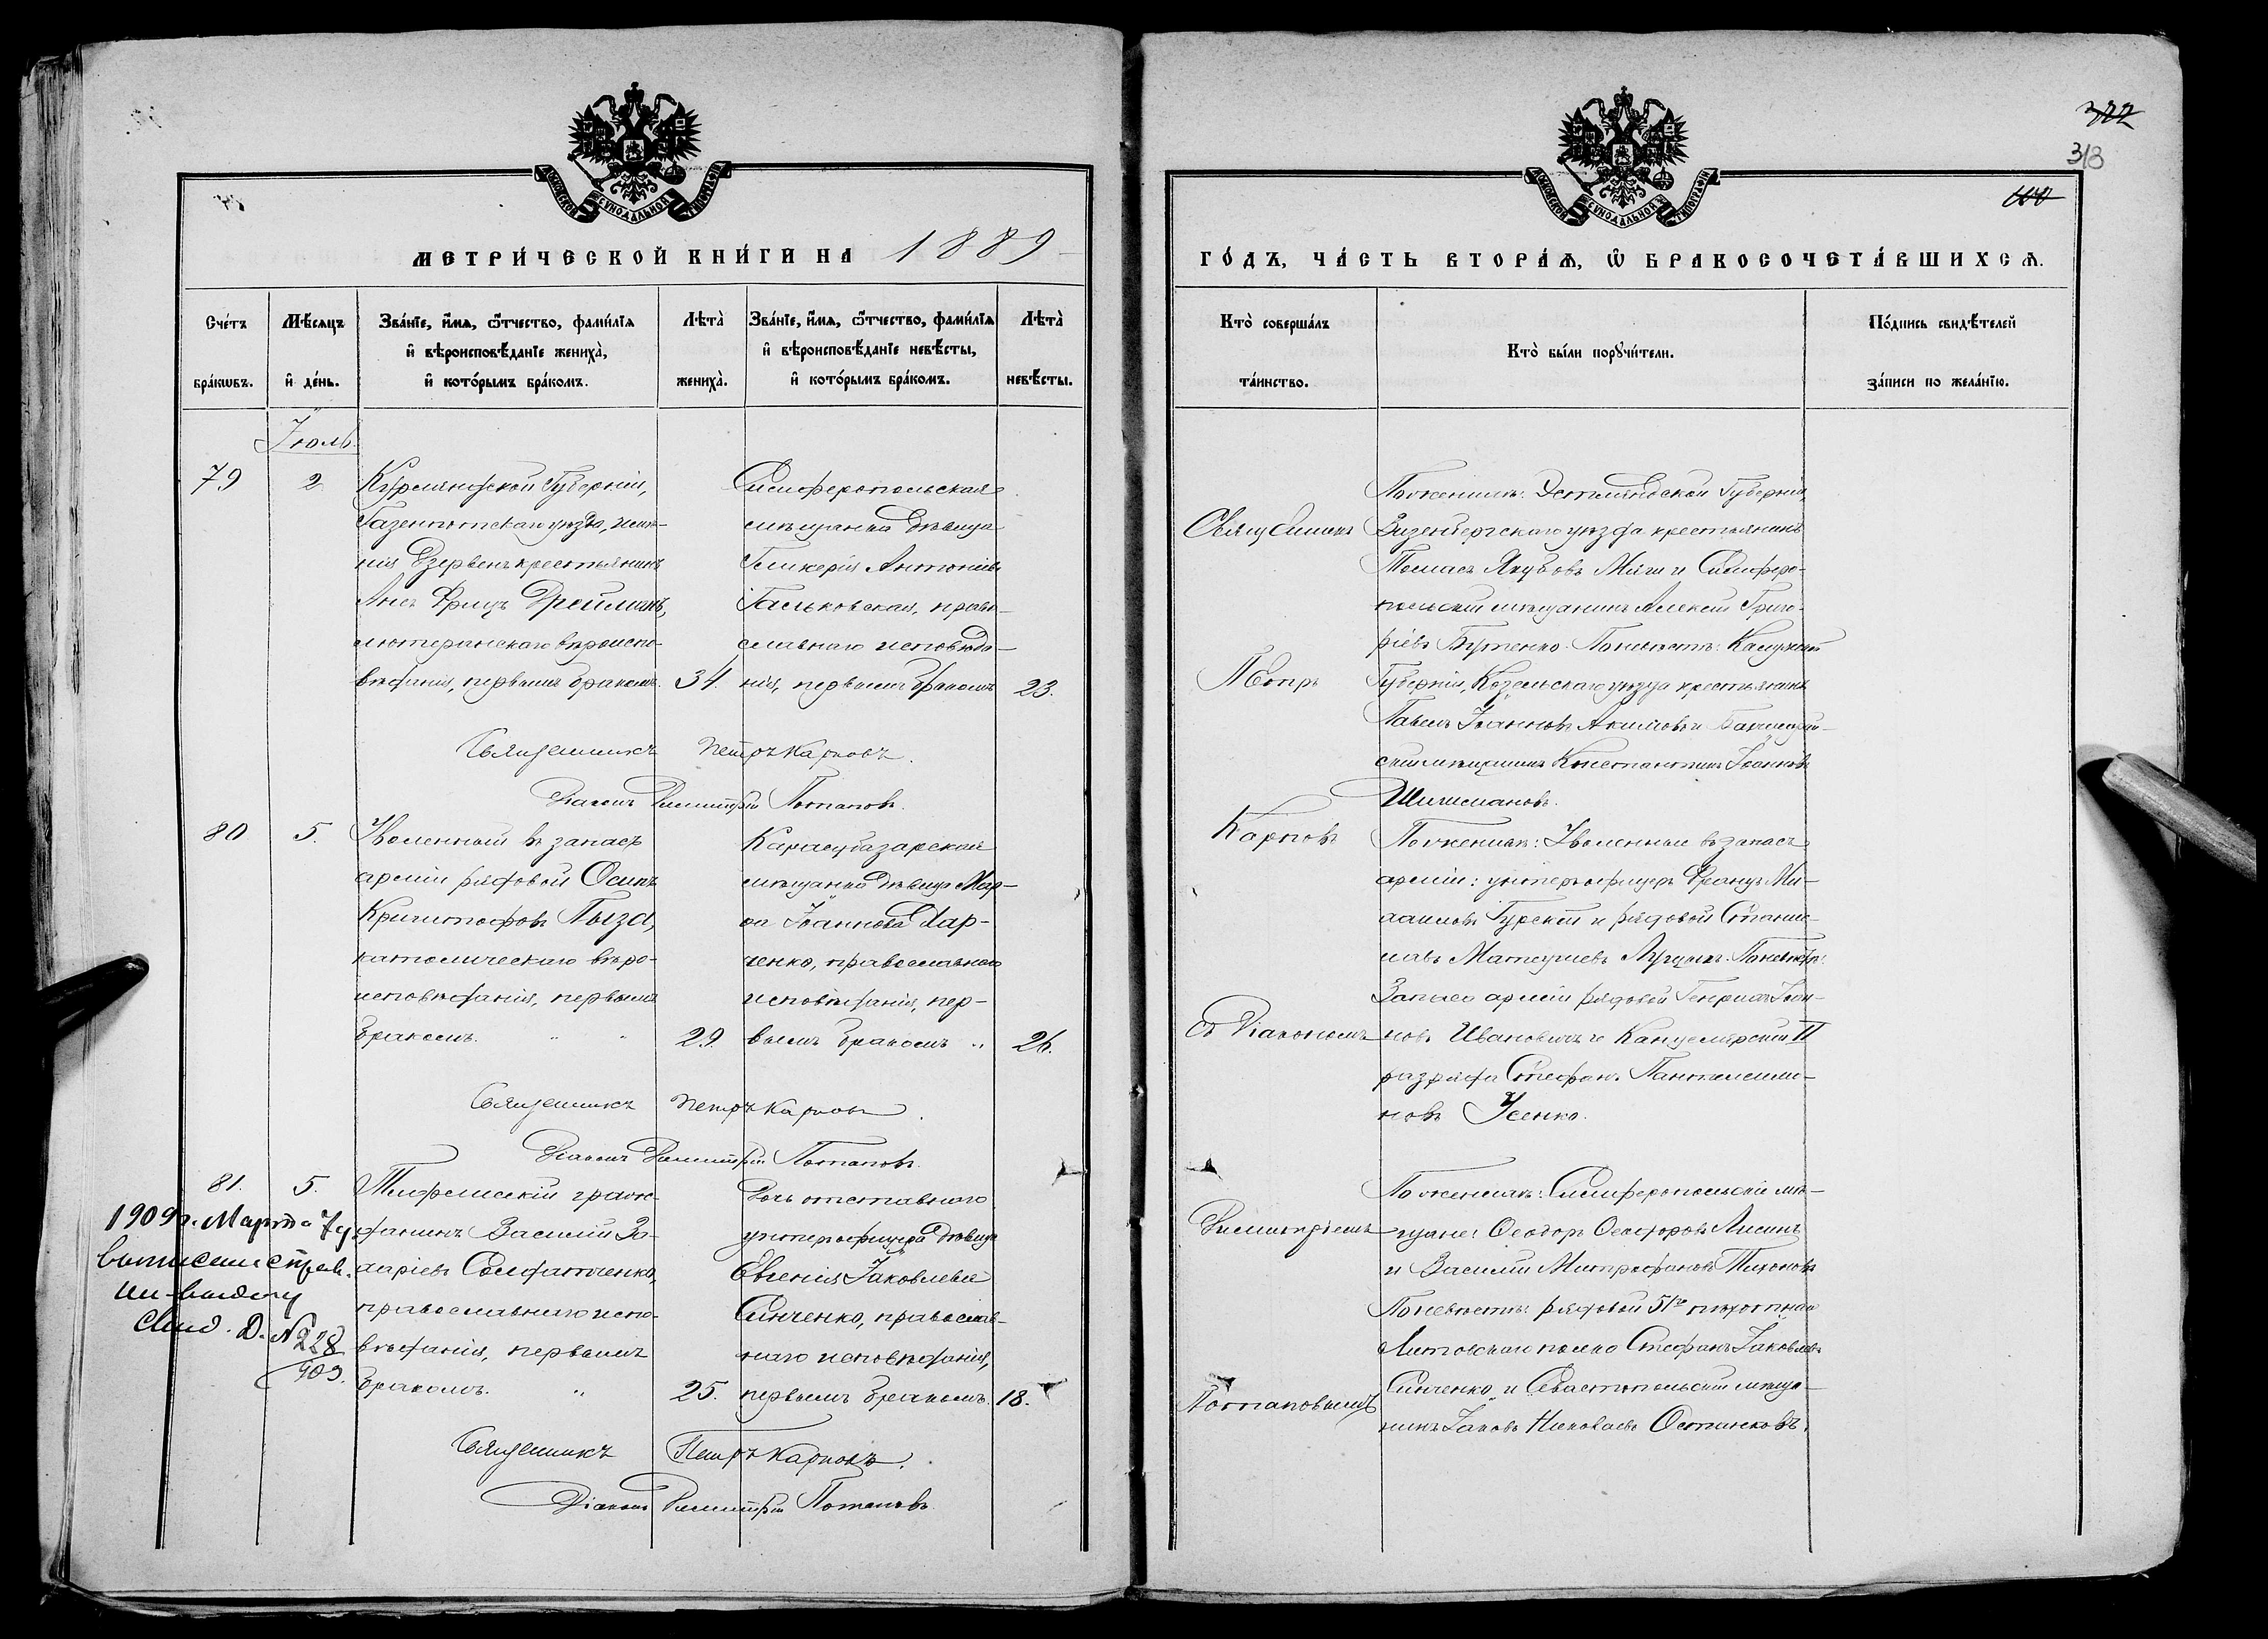 322
318
МОСКОВСКОЙ СѴНОДАЛЬНОЙ ТИПОГРАФІИ
МЕТРИ́ЧЕСКОЙ КНИ́ГИ НА 1889
Сче́тъ бра́кѡвъ.
Мѣ́сяцъ и҆ де́нь.
Зва́нїе, и҆́мѧ, ѻ҆́тчество, фами́лїѧ
и҆ вѣроисповѣ́данїе жениха̀,
и҆ кото́рымъ бра́комъ.
Лѣта̀ жениха̀.
Зва́нїе, и҆́мѧ, ѻ҆́тчество, фами́лїѧ
и҆ вѣроисповѣ́данїе невѣ́сты,
и҆ кото́рымъ бра́комъ.
Лѣта̀ невѣ́сты.
Іюль
79
2
Курляндской Губерніи,
Газенпотскаго уѣзда, имѣ-
нія Дзервенъ крестьянинъ
Фрицъ Дрейманъ,
лютеранскаго вѣроиспо-
вѣданія, первымъ бракомъ.
34.
Симферопольская
мѣщанка дѣвица
Гликерія Антоніева
Гальковская, право-
славнаго исповѣда-
нія, первымъ бракомъ
23.
Священникъ Петръ Карповъ.
Діаконъ Димитрій Потаповъ.
80
5.
Уволенный въ запасъ
арміи рядовой Осипъ
Криштофовъ Пыза,
католическаго вѣро-
исповѣданія, первымъ
бракомъ.
29
Карасубазарская
мѣщанка дѣвица Мар-
ѳа Іоаннова Хар-
ченко, православнаго
исповѣданія, пер-
вымъ бракомъ
26.
Священникъ Петръ Карповъ.
Діаконъ Димитрій Потаповъ.
81.
5.
Тифлисскій граж-
данинъ Василій За-
харіевъ
православнаго испо-
вѣданія, первымъ
бракомъ.
25.
Дочь отставнаго
унтеръ-офицера дѣвица
Евгенія Іаковлева
Синченко, православ-
наго исповѣданія,
первымъ бракомъ.
18.
1909 г. Марта 7 д.
D. № 228
909.
Священникъ Петръ Карповъ.
Діаконъ Димитрій Потаповъ.
МОСКОВСКОЙ СѴНОДАЛЬНОЙ ТИПОГРАФІИ
ГО́ДЪ, ЧА́СТЬ ВТОРА́Ѧ, Ѡ҆ БРАКОСОЧЕТА́ВШИХСѦ.
Кто̀ соверша́лъ та́инство.
Кто̀ бы́ли порꙋчи́тели.
По́дпись свидѣ́телей за́писи по жела́нїю.
Священникъ
Петръ
Карповъ
съ Діакономъ
Димитріемъ
Потаповымъ
По женихѣ: Эстляндской Губерніи,
Везенбергскаго уѣзда крестьянинъ
Томасъ Якубовъ и Симферо-
польскій мѣщанинъ Алексѣй Григо-
ріевъ Бутенко. По невѣстѣ: Калужской
Губерніи, Козельскаго уѣзда крестьянинъ
Павелъ Іоанновъ Акимовъ и Бахчисарай-
скій мѣщанинъ Константинъ Іоанновъ
Шишмановъ.
По женихѣ: Уволенные въ запасъ
арміи: унтеръ-офицеръ Францъ Ми-
хаиловъ Гурскій и рядовой Станис-
лавъ Матеушевъ По невѣстѣ:
Запаса арміи рядовой Генрихъ Іоан-
новъ Ивановичъ и Канцелярскій II
разряда Стефанъ Пантелеимо-
новъ Усенко.
По женихѣ: Симферопольскіе мѣ-
щане: Ѳеодоръ Ѳеодоровъ Лисинъ
и Василій Митрофановъ Тихоновъ
По невѣстѣ: рядовой 51го пѣхотнаго
Литовскаго полка Стефанъ Іаковлевъ
Синченко и Севастопольскій мѣща-
нинъ Іаковъ Николаевъ Останковъ.